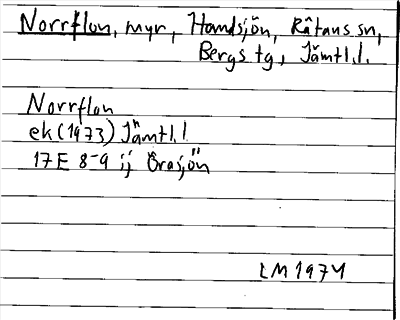 Norrflon, myr, Handsjön, Rätans sn,
Bergs tg, Jämtl.l.
Norrflon
ek (1973) Jämtl.l
17E 8-9 ij Örasjön
LM 1974